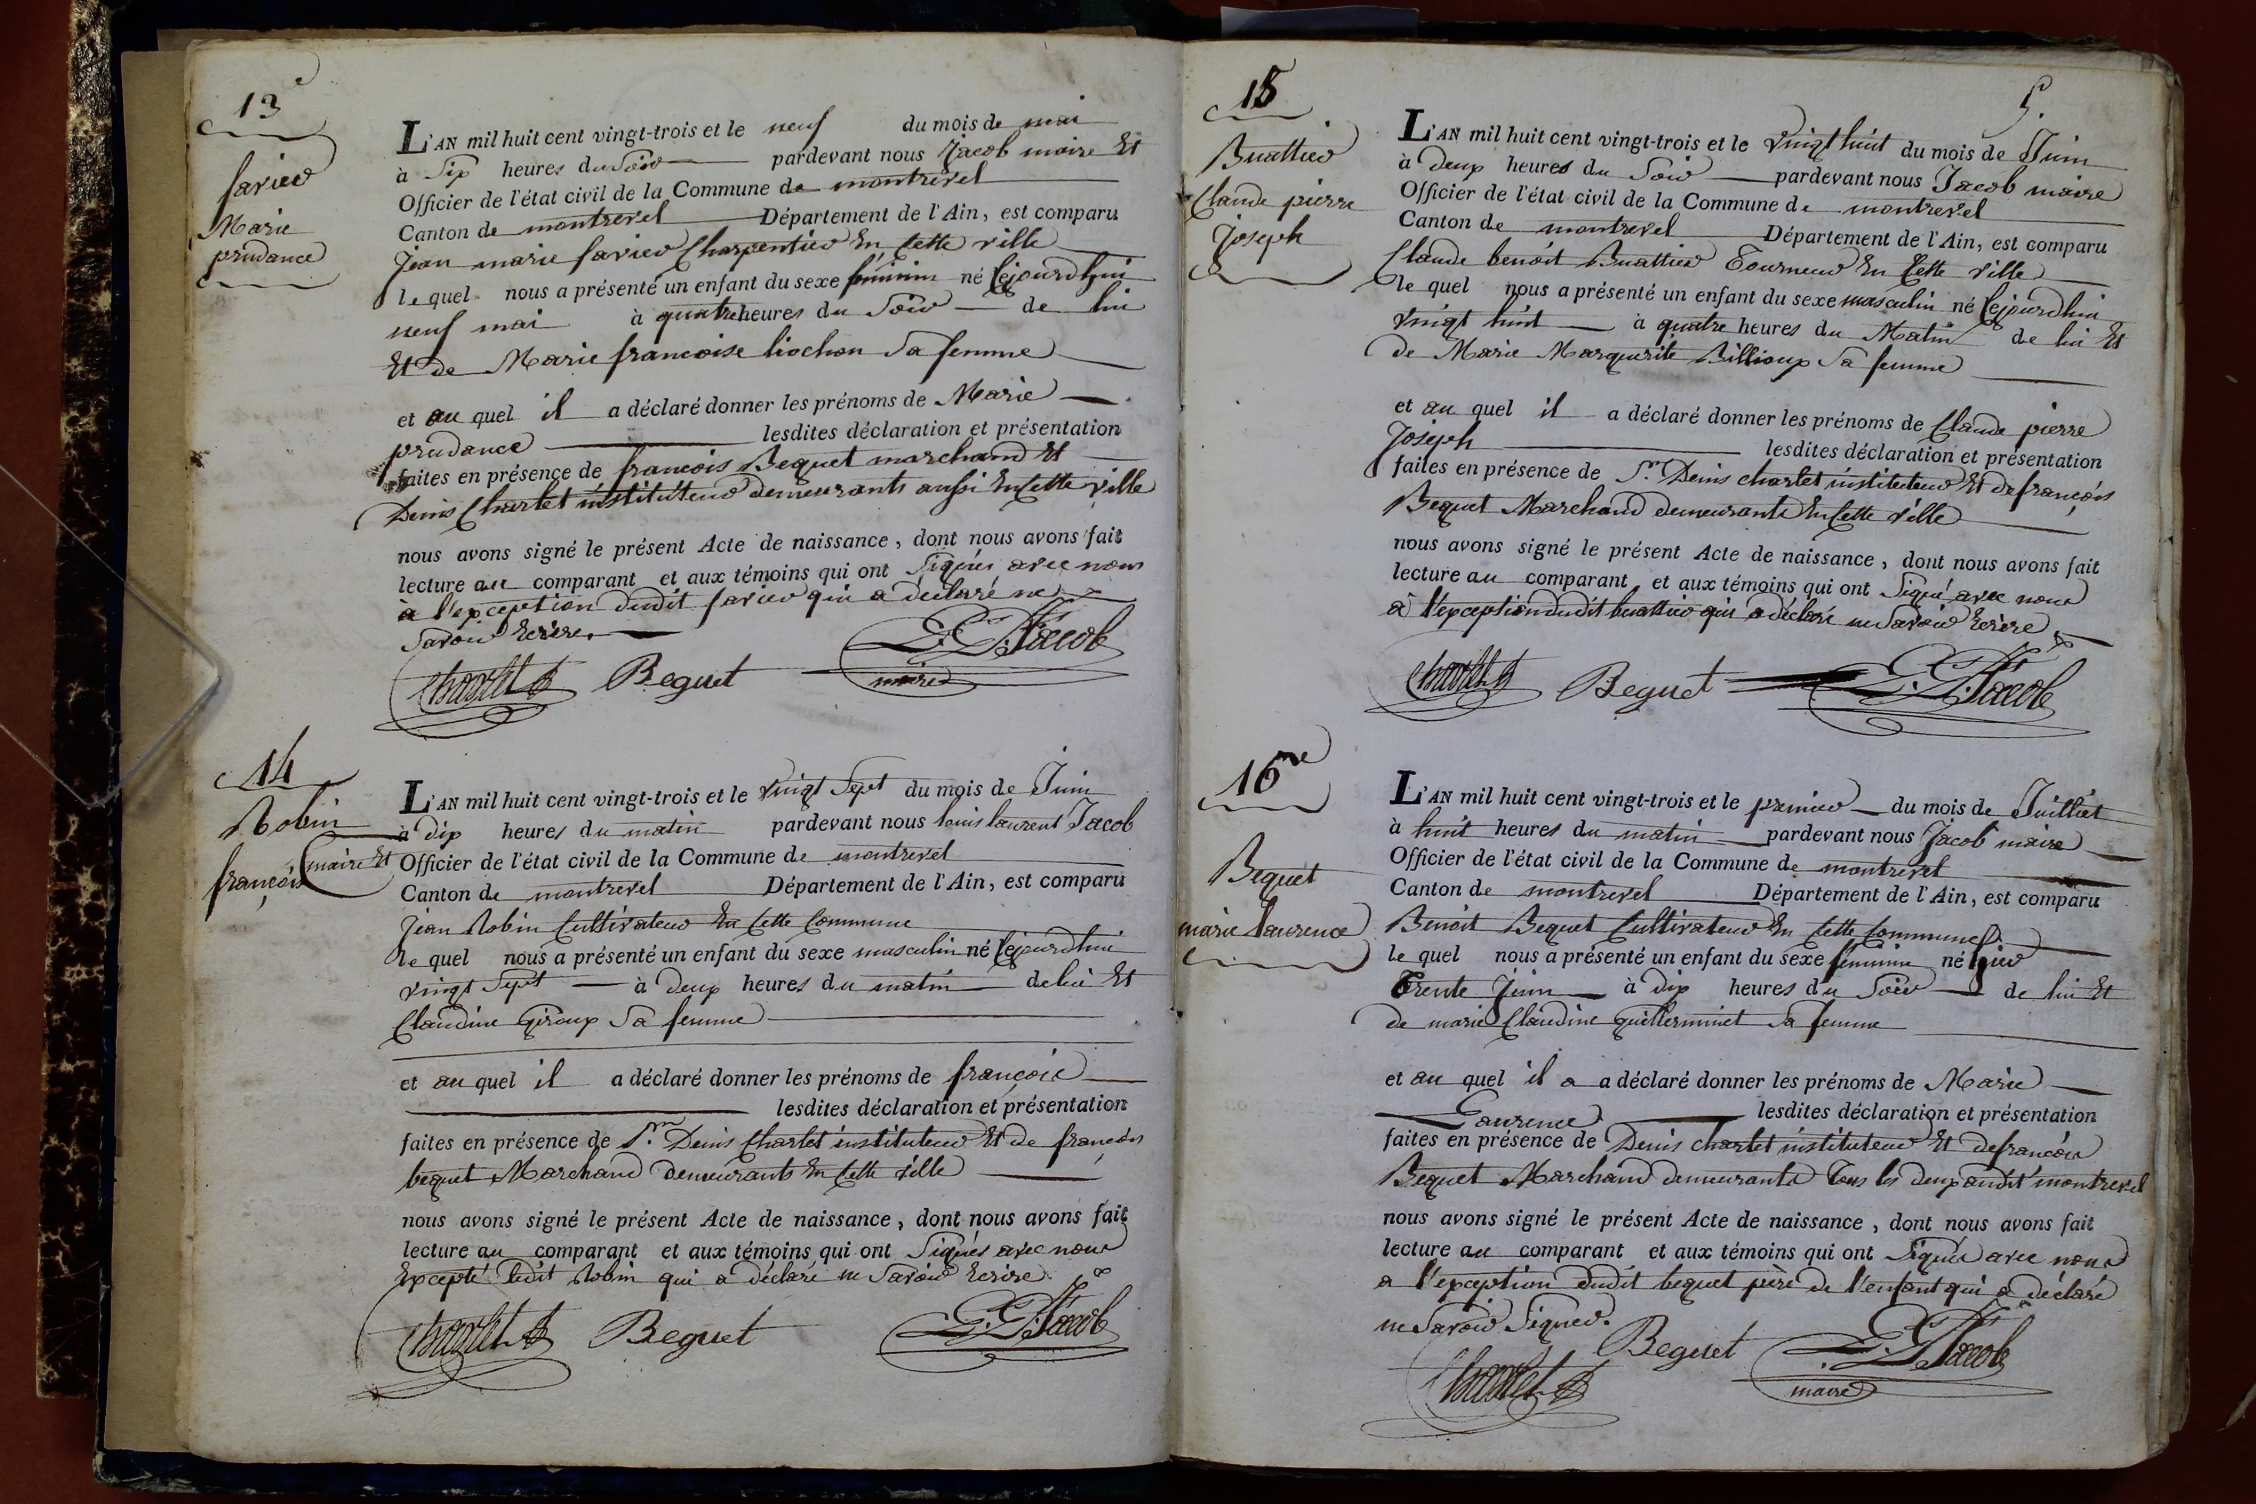 13e
favier
Marie
prudance
L'AN mil huit cent vingt-trois et le neuf du mois de mai
à Six heures du Soir pardevant nous Jacob maire Et
Officier de l'état civil de la Commune de montrevel
Canton de montrevel Département de l'Ain, est comparu
Jean marie favier Charpentier En Cette ville
le quel nous a présenté un enfant du sexe féminin né Cejourdhui
neuf mai à quatre heures du Soir de lui
Et de Marie francoise liochon Sa femme
et au quel il a déclaré donner les prénoms de Marie
prudance lesdites déclaration et présentation
faites en présence de francois Bequet marchand Et
Denis Charlet instituteur demeurants aussi En Cette ville
nous avons signé le présent Acte de naissance, dont nous avons fait
lecture au comparant et aux témoins qui ont Signés avec nous
à l'exception dudit favier qui a déclaré ne
Savoir Ecrire.
Charlet Beguet Jacob
maire
14
Robin
françois
L'AN mil huit cent vingt-trois et le vingt Sept du mois de Juin
à dix heures du matin pardevant nous louis laurent Jacob
maire Et Officier de l'état civil de la Commune de montrevel
Canton de montrevel Département de l'Ain, est comparu
Jean Robin Cultivateur En Cette Commune
le quel nous a présenté un enfant du sexe masculin né Cejourdhui
vingt Sept à deux heures du matin de lui Et
Claudine Giroux Sa femme
et au quel il a déclaré donner les prénoms de françois
lesdites déclaration et présentation
faites en présence de Sr. Denis Charlet instituteur Et de françois
bequet Marchand Demeurants En Cette ville
nous avons signé le présent Acte de naissance, dont nous avons fait
lecture au comparant et aux témoins qui ont Signés avec nous
Excepté ledit Robin qui a déclaré ne Savoir Ecrire
Charlet Beguet Jacob
15
Buattier
Claude pierre
Joseph
5.
L'AN mil huit cent vingt-trois et le vingt huit du mois de Juin
à deux heures du Soir pardevant nous Jacob maire
Officier de l'état civil de la Commune de montrevel
Canton de montrevel Département de l'Ain, est comparu
Claude benoit Buattier Tourneur En Cette ville
le quel nous a présenté un enfant du sexe masculin né Cejourdhui
vingt huit à quatre heures du Matin de lui Et
de Marie Marguerite Billioux Sa femme
et au quel il a déclaré donner les prénoms de Claude pierre
Joseph lesdites déclaration et présentation
faites en présence de Sr. Denis charlet instituteur Et de françois
Bequet Marchand demeurants En Cette ville
nous avons signé le présent Acte de naissance, dont nous avons fait
lecture au comparant et aux témoins qui ont Signé avec nous
à l'exception dudit buattier qui a déclaré ne Savoir Ecrire
Charlet Beguet Jacob
16me
Bequet
marie laurence
L'AN mil huit cent vingt-trois et le premier du mois de Juilliet
à huit heures du matin pardevant nous Jacob maire
Officier de l'état civil de la Commune de montrevel
Canton de montrevel Département de l'Ain, est comparu
Benoit Bequet Cultivateur En Cette Commune
le quel nous a présenté un enfant du sexe féminin né hier
Trente Juin à dix heures du Soir de lui Et
de marie Claudine guillerminet Sa femme
et au quel il a a déclaré donner les prénoms de Marie
Laurence lesdites déclaration et présentation
faites en présence de Denis charlet instituteur Et de françois
Bequet Marchand demeurants Tous les deux audit montrevel
nous avons signé le présent Acte de naissance, dont nous avons fait
lecture au comparant et aux témoins qui ont Signés avec nous
a l'exception dudit bequet père de l'enfant qui a déclaré
ne Savoir Signer.
Charlet Beguet Jacob
maire